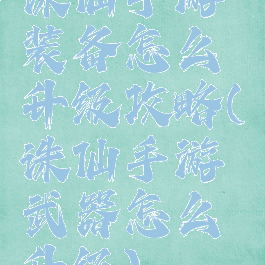 诛仙手游
装备怎么
升级攻略(
诛仙手游
武器怎么
升级)